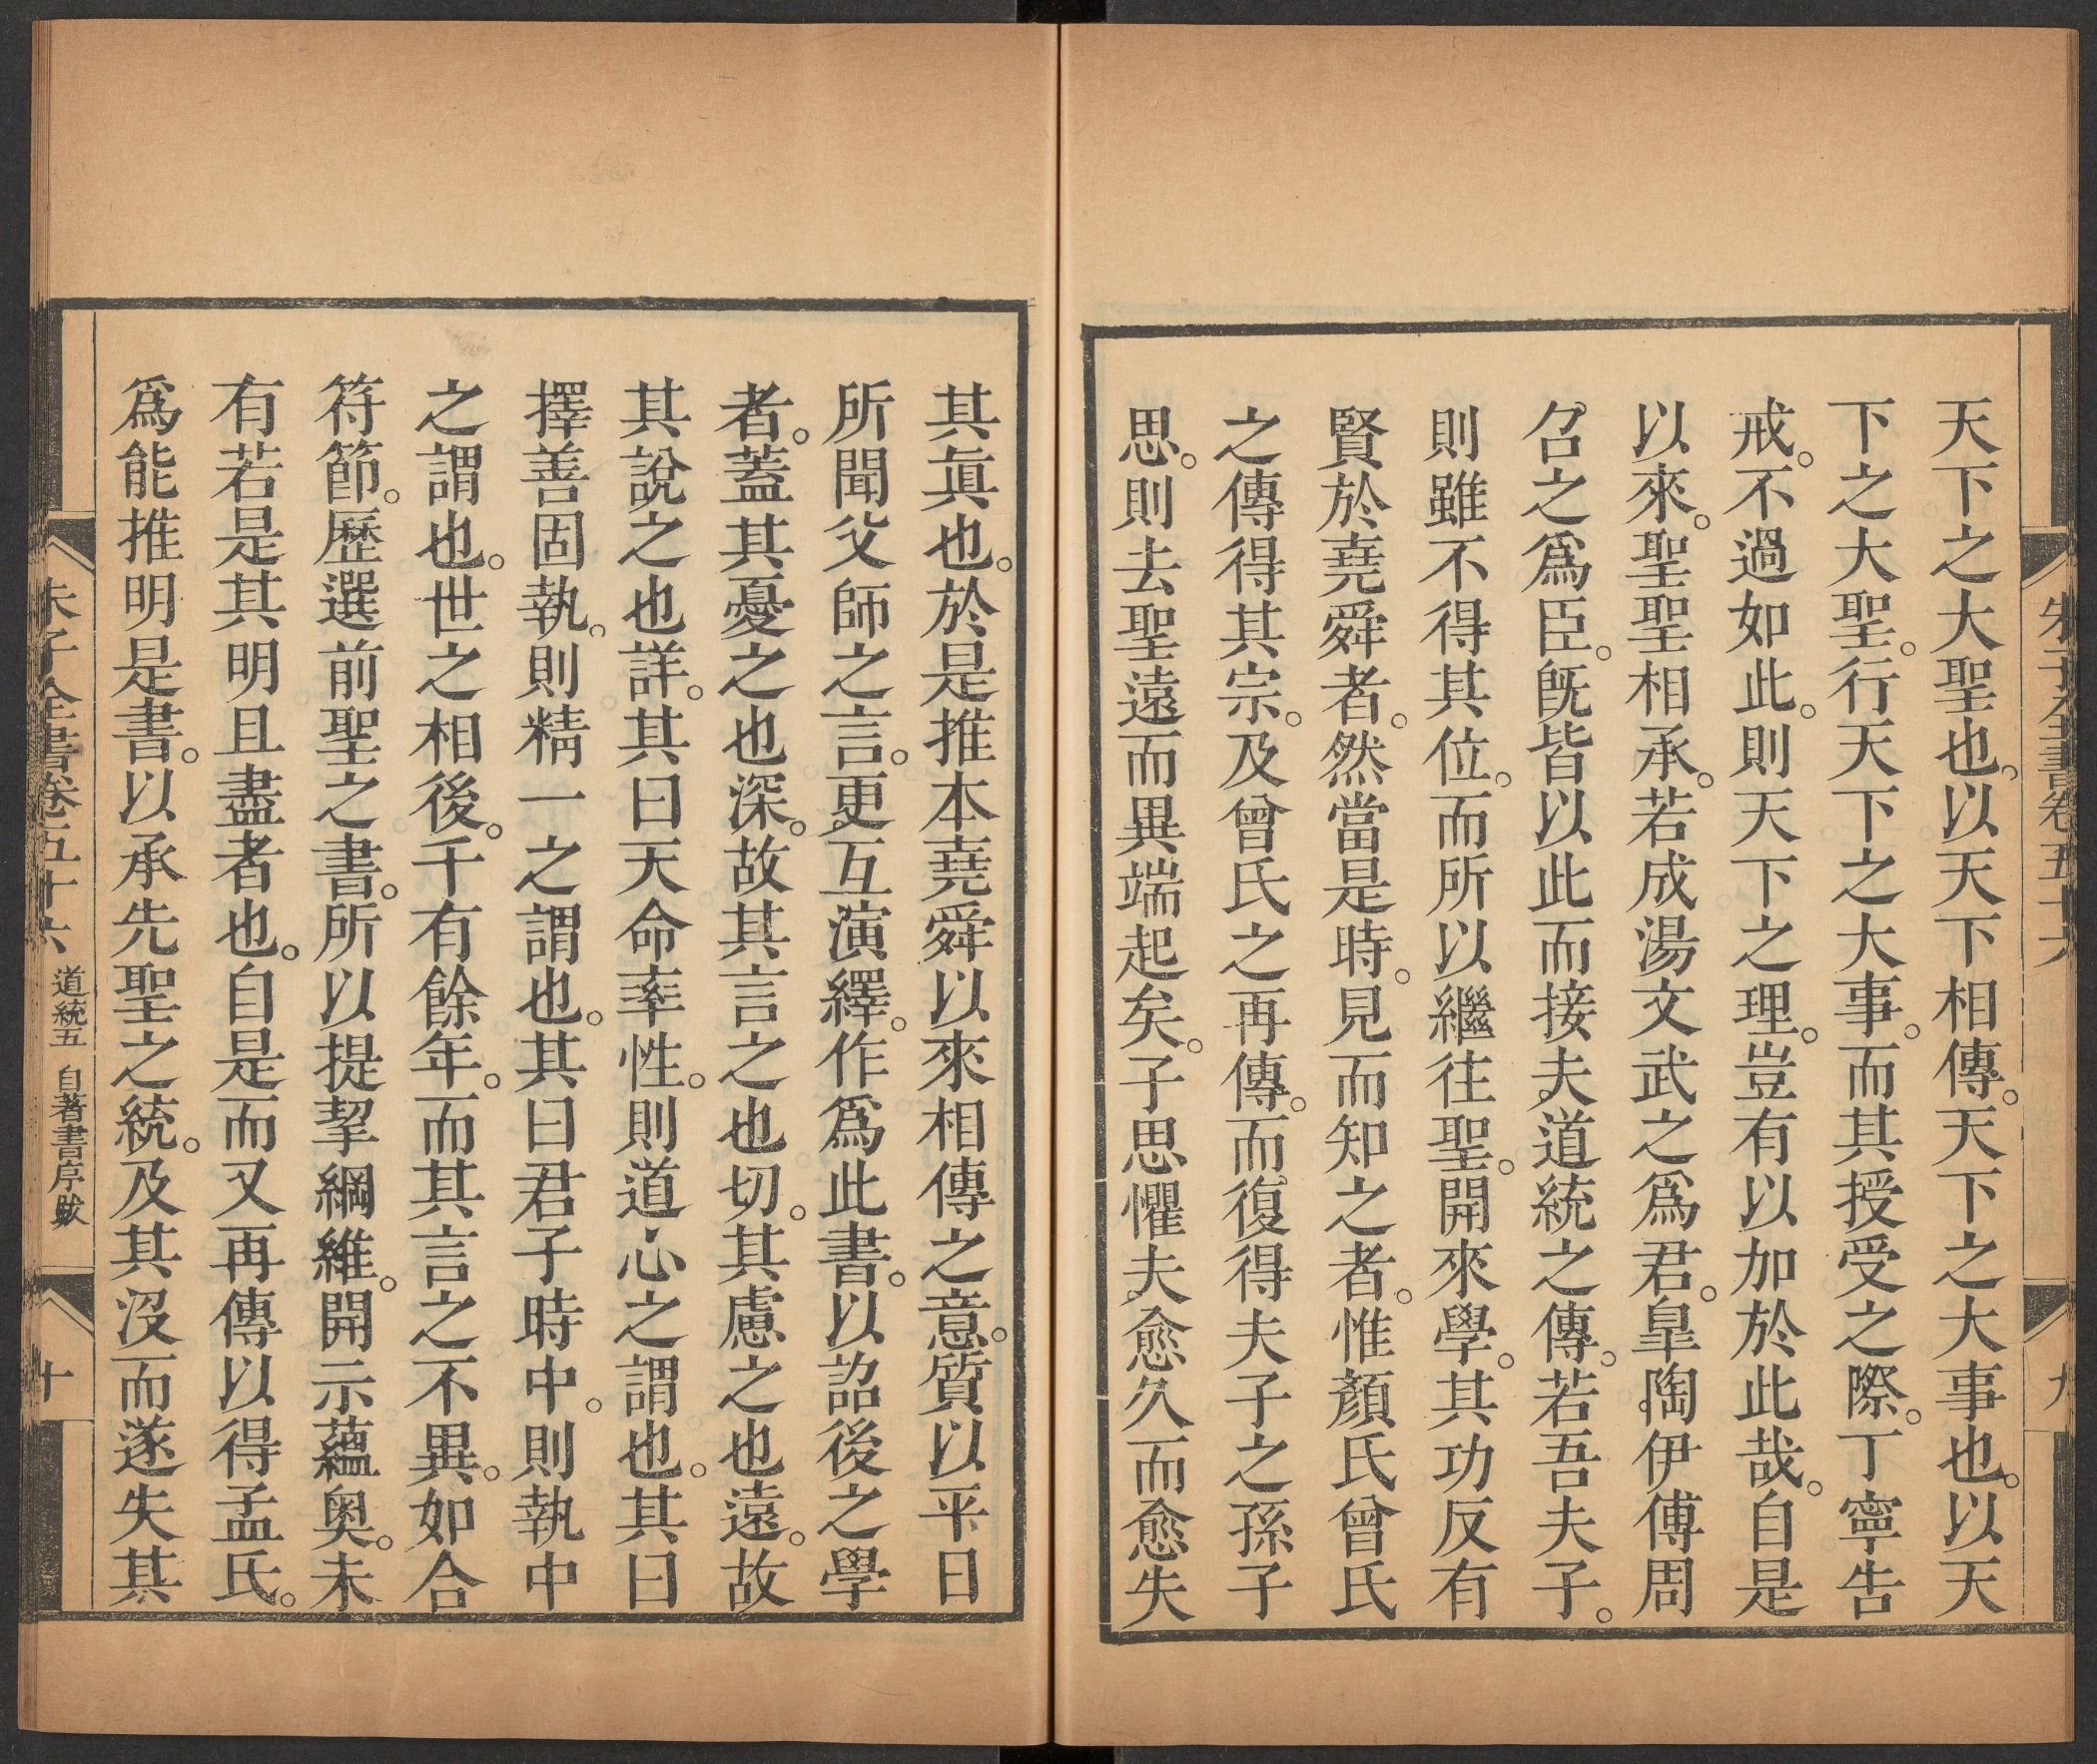 朱子全書卷五十六
九
天下之大聖也。以天下相傳。天下之大事也。以天
下之大聖。行天下之大事。而其授受之際。丁寧告
戒。不過如此。則天下之理。豈有以加於此哉。自是
以來。聖聖相承。若成湯文武之爲君。臯陶伊傅周
召之爲臣。旣皆以此而接夫道統之傳。若吾夫子。
則雖不得其位。而所以繼往聖。開來學。其功反有
賢於堯舜者。然當是時。見而知之者。惟顏氏曾氏
之傳得其宗。及曾氏之再傳。而復得夫子之孫子
思。則去聖遠而異端起矣。子思懼夫愈久而愈失
其眞也。於是推本堯舜以來相傳之意。質以平日
所聞父師之言。更互演繹。作爲此書。以詔後之學
者。蓋其憂之也深。故其言之也切。其慮之也遠。故
其說之也詳。其曰天命率性。則道心之謂也。其曰
擇善固執。則精一之謂也。其曰君子時中。則執中
之謂也。世之相後。千有餘年。而其言之不異。如合
符節。歷選前聖之書。所以提挈綱維。開示蘊奧。未
有若是其明且盡者也。自是而又再傳以得孟氏。
爲能推明是書。以承先聖之統。及其沒而遂失其
朱子全書卷五十六 道統五 自著書序跋
十